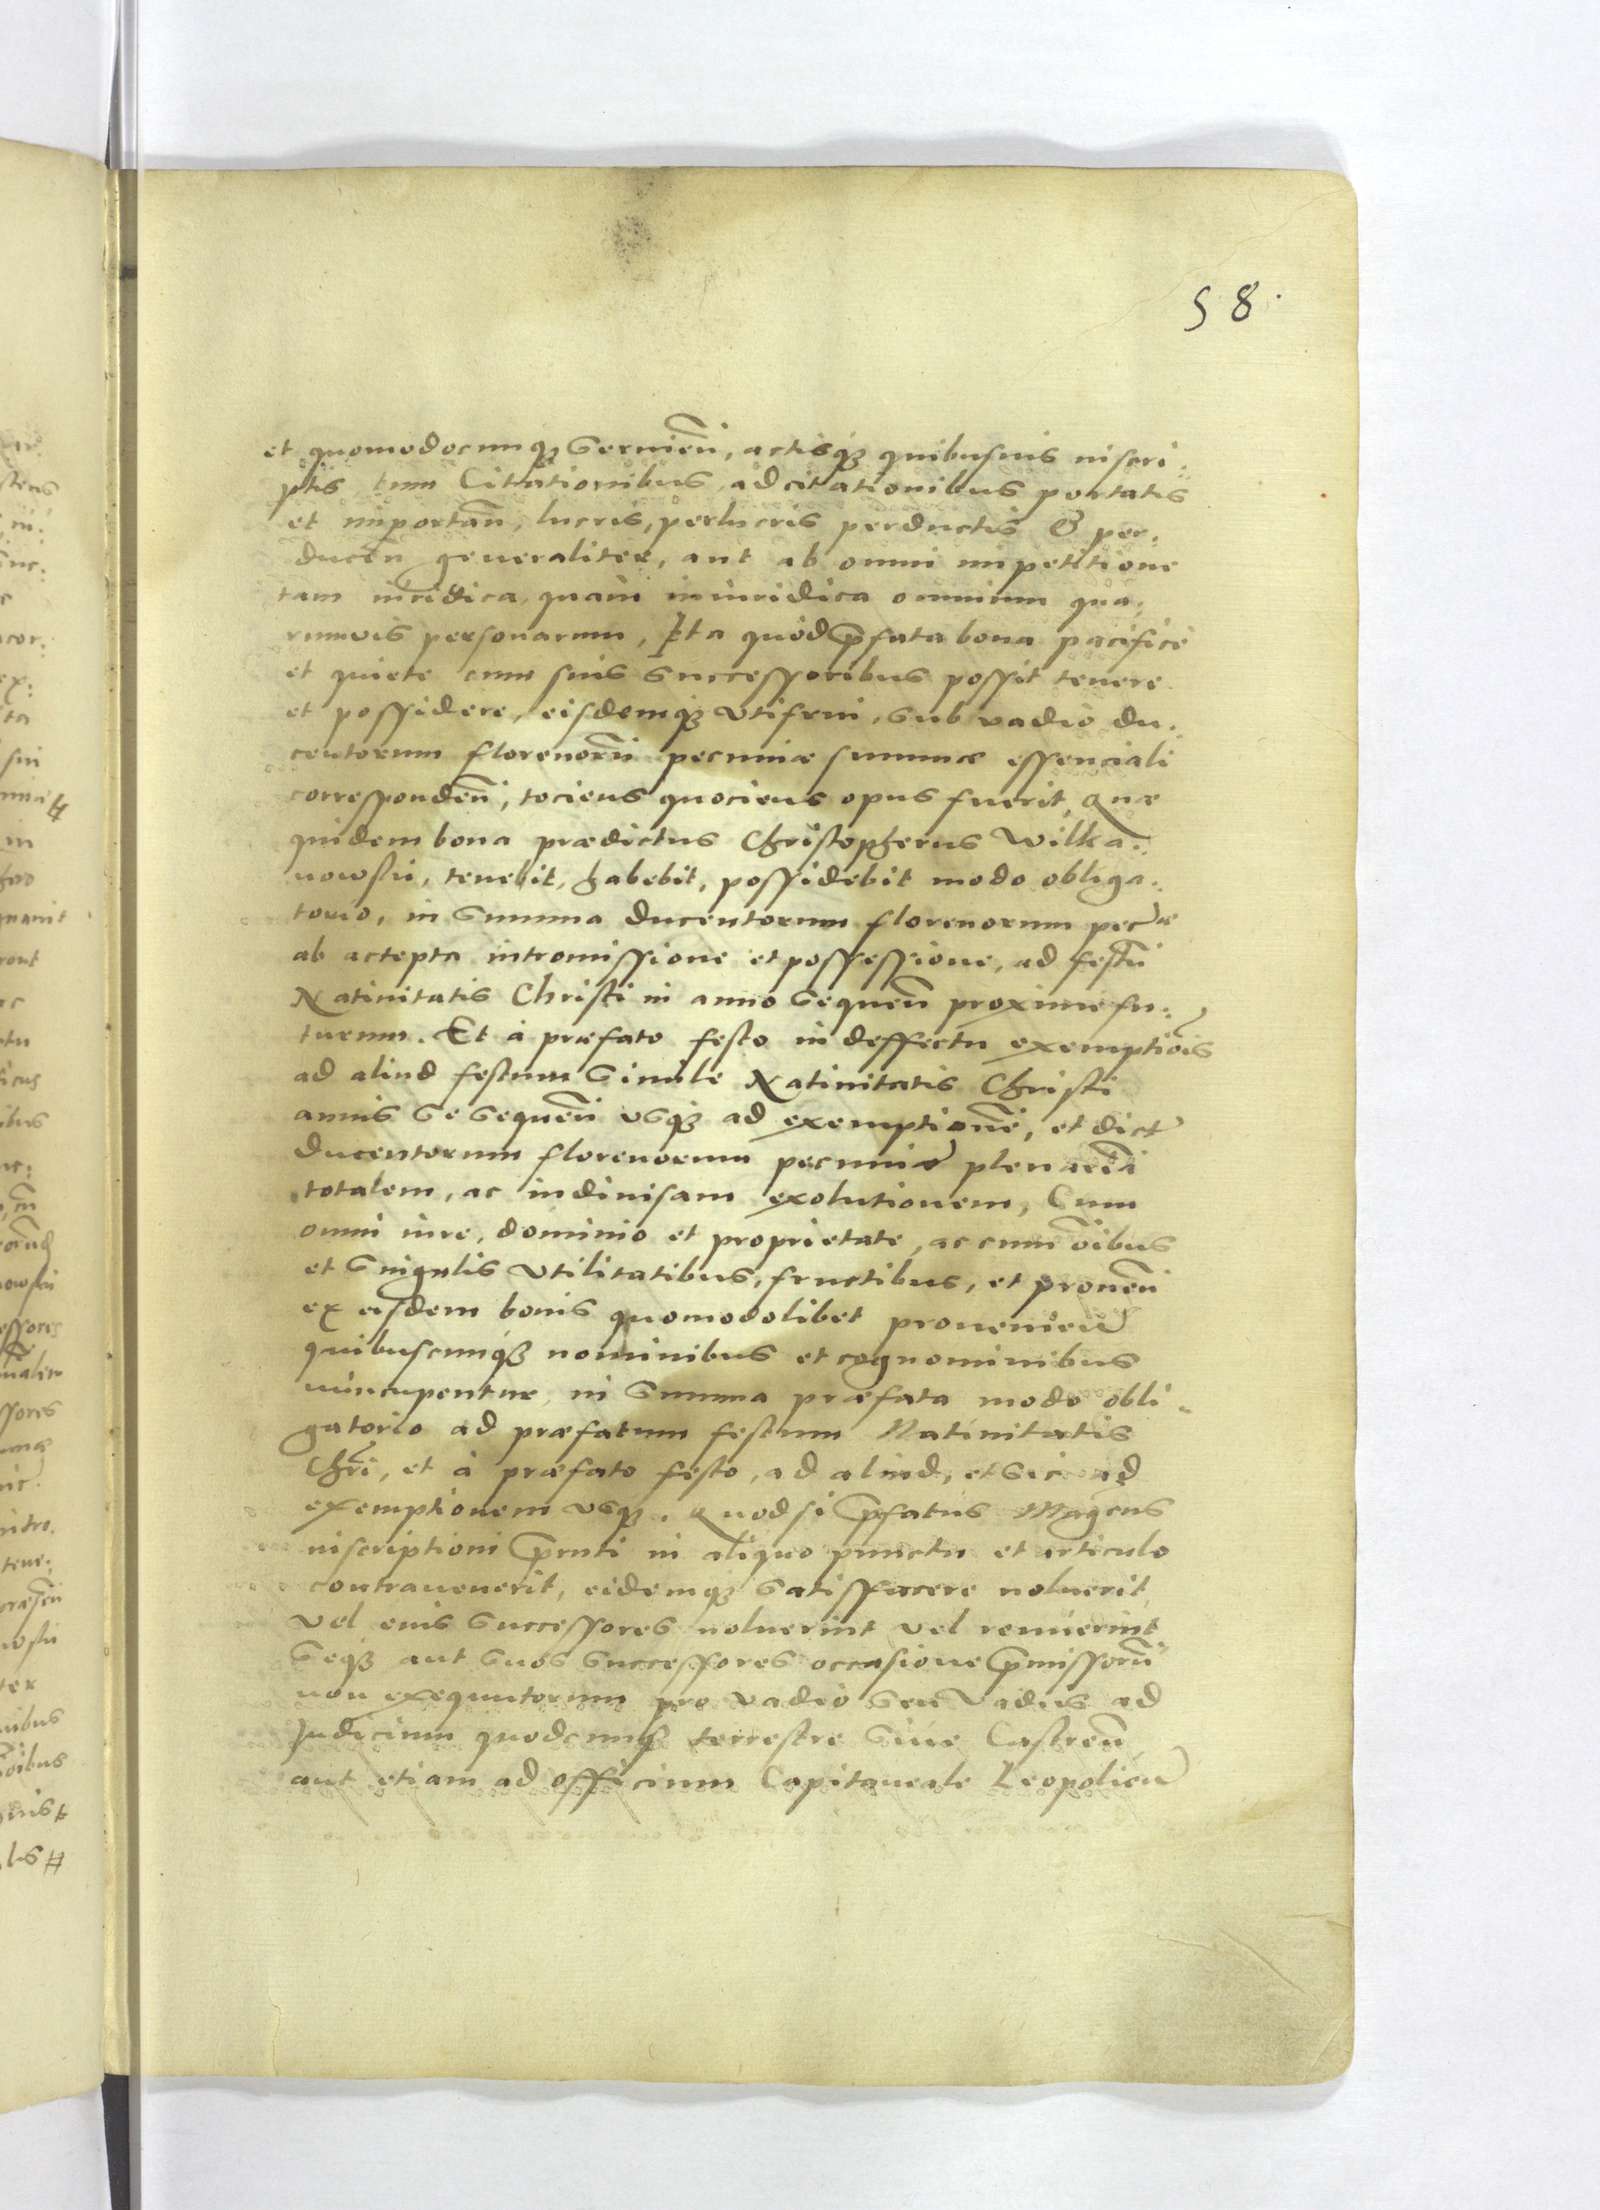 58.
et quomodocunq3 seruien̄, actisq3 quibusuis inscri:
ptis tum Citationibus, adcitationibus portatis
et importan̄, lucris, perlucris perductis & per:
ducen̄ generaliter, aut ab omni impetitione
tam iuridica, quam iniuridica omnium qua:
rumuis personarum, Ita quòd p̄fata bona pacifice
et quiete cum suis successoribus possit tenere
et possidere, eisdemq3 vtifrui, sub vadio du:
centorum florenorū pecuniæ summæ essenciali
corresponden̄, tociens quociens opus fuerit, Quæ
quidem bona prædictus Christopherus Wilka:
nowski, tenebit, habebit, possidebit modo obliga:
torio, in summa ducentorum florenorum pecæ
ab accepta intromissione et possessione, ad festū
Natiuitatis Christi in anno sequen̄ proxime fu:
turum. Et à præfato festo in deffectu exemptiōis
ad aliud festum simile Natiuitatis Christi
annis se sequen̄ vsq3 ad exemptionē, et dict
ducentorum florenorum pecuniæ plenariā
totalem, ac indiuisam exolutionem, Cum
omni iure, dominio et proprietate, ac cum ōibus
et singulis vtilitatibus, fructibus, et prouen̄
ex eisdem bonis quomodolibet prouenien̄
quibuscunq3 nominibus et cognominibus
nuncupentur, in summa præfata modo obli:
gatorio ad præfatum festum Natiuitatis
Chri̅, et à præfato festo, ad aliud, et sic ad
exemptionem vsq3. Quod si p̄fatus Mag̅cus
inscriptioni p̄nti in aliquo punctu et articulo
contrauenerit, eidemq3 satisfacere noluerit,
vel eius successores noluerint vel renuerint
seq3 aut suos successores occasione p̄missorū
non exequutorum pro vadio seu vadiis ad
Judicium quodcunq3 terrestre siue Castren̄
aut etiam ad officium Capitaneale Leopolien̄